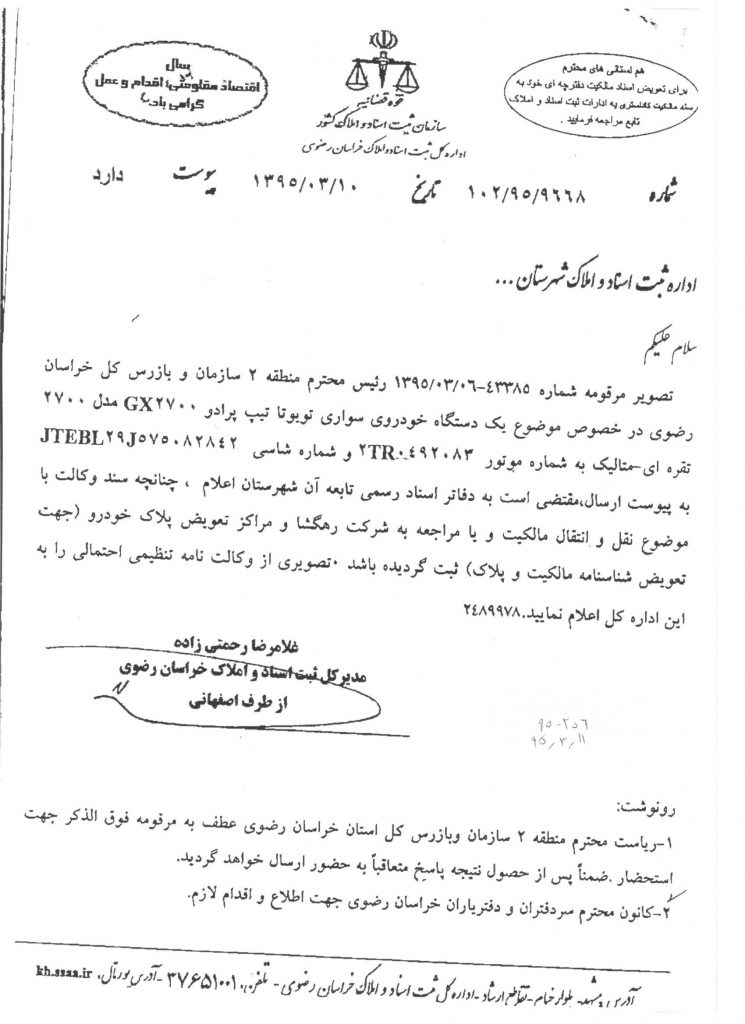 سال
اقتصاد مقاومتی؛ اقدام و عمل
گرامی باد
قوه قضائیه
سازمان ثبت اسناد و املاک کشور
اداره کل ثبت اسناد و املاک خراسان رضوی
هم استانی های محترم
برای تعویض اسناد مالکیت دفترچه ای خود به
سند مالکیت کاداستری به ادارات ثبت اسناد و املاک
تابع مراجعه فرمایید.
شماره ۱۰۲/۹۵/۹۶۶۸ تاریخ ۱۳۹۵/۰۳/۱۰ پیوست دارد
اداره ثبت اسناد و املاک شهرستان ...
سلام علیکم
تصویر مرقومه شماره ۴۳۳۸۵-۱۳۹۵/۰۳/۰۶ رئیس محترم منطقه ۲ سازمان و بازرس کل خراسان
رضوی در خصوص موضوع یک دستگاه خودروی سواری تویوتا تیپ پرادو GX۲۷۰۰ مدل ۲۷۰۰
نقره ای-متالیک به شماره موتور ۲TR۰۴۹۲۰۸۳ و شماره شاسی JTEBL۲۹J۵۷۵۰۸۲۸۴۲
به پیوست ارسال،مقتضی است به دفاتر اسناد رسمی تابعه آن شهرستان اعلام ، چنانچه سند وکالت با
موضوع نقل و انتقال مالکیت و یا مراجعه به شرکت رهگشا و مراکز تعویض پلاک خودرو (جهت
تعویض شناسنامه مالکیت و پلاک) ثبت گردیده باشد ۰تصویری از وکالت نامه تنظیمی احتمالی را به
این اداره کل اعلام نمایید.۲۴۸۹۹۷۸
غلامرضا رحمتی زاده
مدیرکل ثبت اسناد و املاک خراسان رضوی
از طرف اصفهانی
۹۵-۲۵۶
۹۵/۳/۱۱
رونوشت:
۱-ریاست محترم منطقه ۲ سازمان وبازرس کل استان خراسان رضوی عطف به مرقومه فوق الذکر جهت
استحضار .ضمناً پس از حصول نتیجه پاسخ متعاقباً به حضور ارسال خواهد گردید.
۲-کانون محترم سردفتران و دفتریاران خراسان رضوی جهت اطلاع و اقدام لازم.
آدرس : مشهد- بلوار خیام- تقاطع ارشاد -اداره کل ثبت اسناد و املاک خراسان رضوی - تلفن: ۳۷۶۵۱۰۰۱ -آدرس پورتال. kh.ssaa.ir